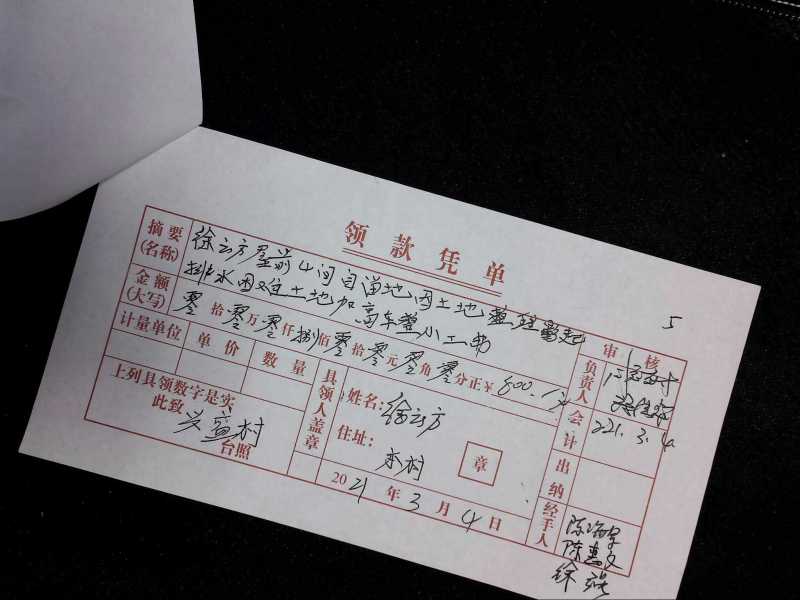 领款凭单
5
摘要(名称) 徐云方屋前4间自留地因土地
排水困难土地加高车 小工费
金额(大写) 零拾零万零仟捌佰零拾零元零角零分正¥800.
计量单位 单价 数量
上列具领数字是实
此致
兴 村
台照
具领人盖章
姓名:徐云方
住址:
本村
章
2021年3月4日
审核
负责人
会计 221.3.4
出纳
经手人
陈海
陈惠
徐